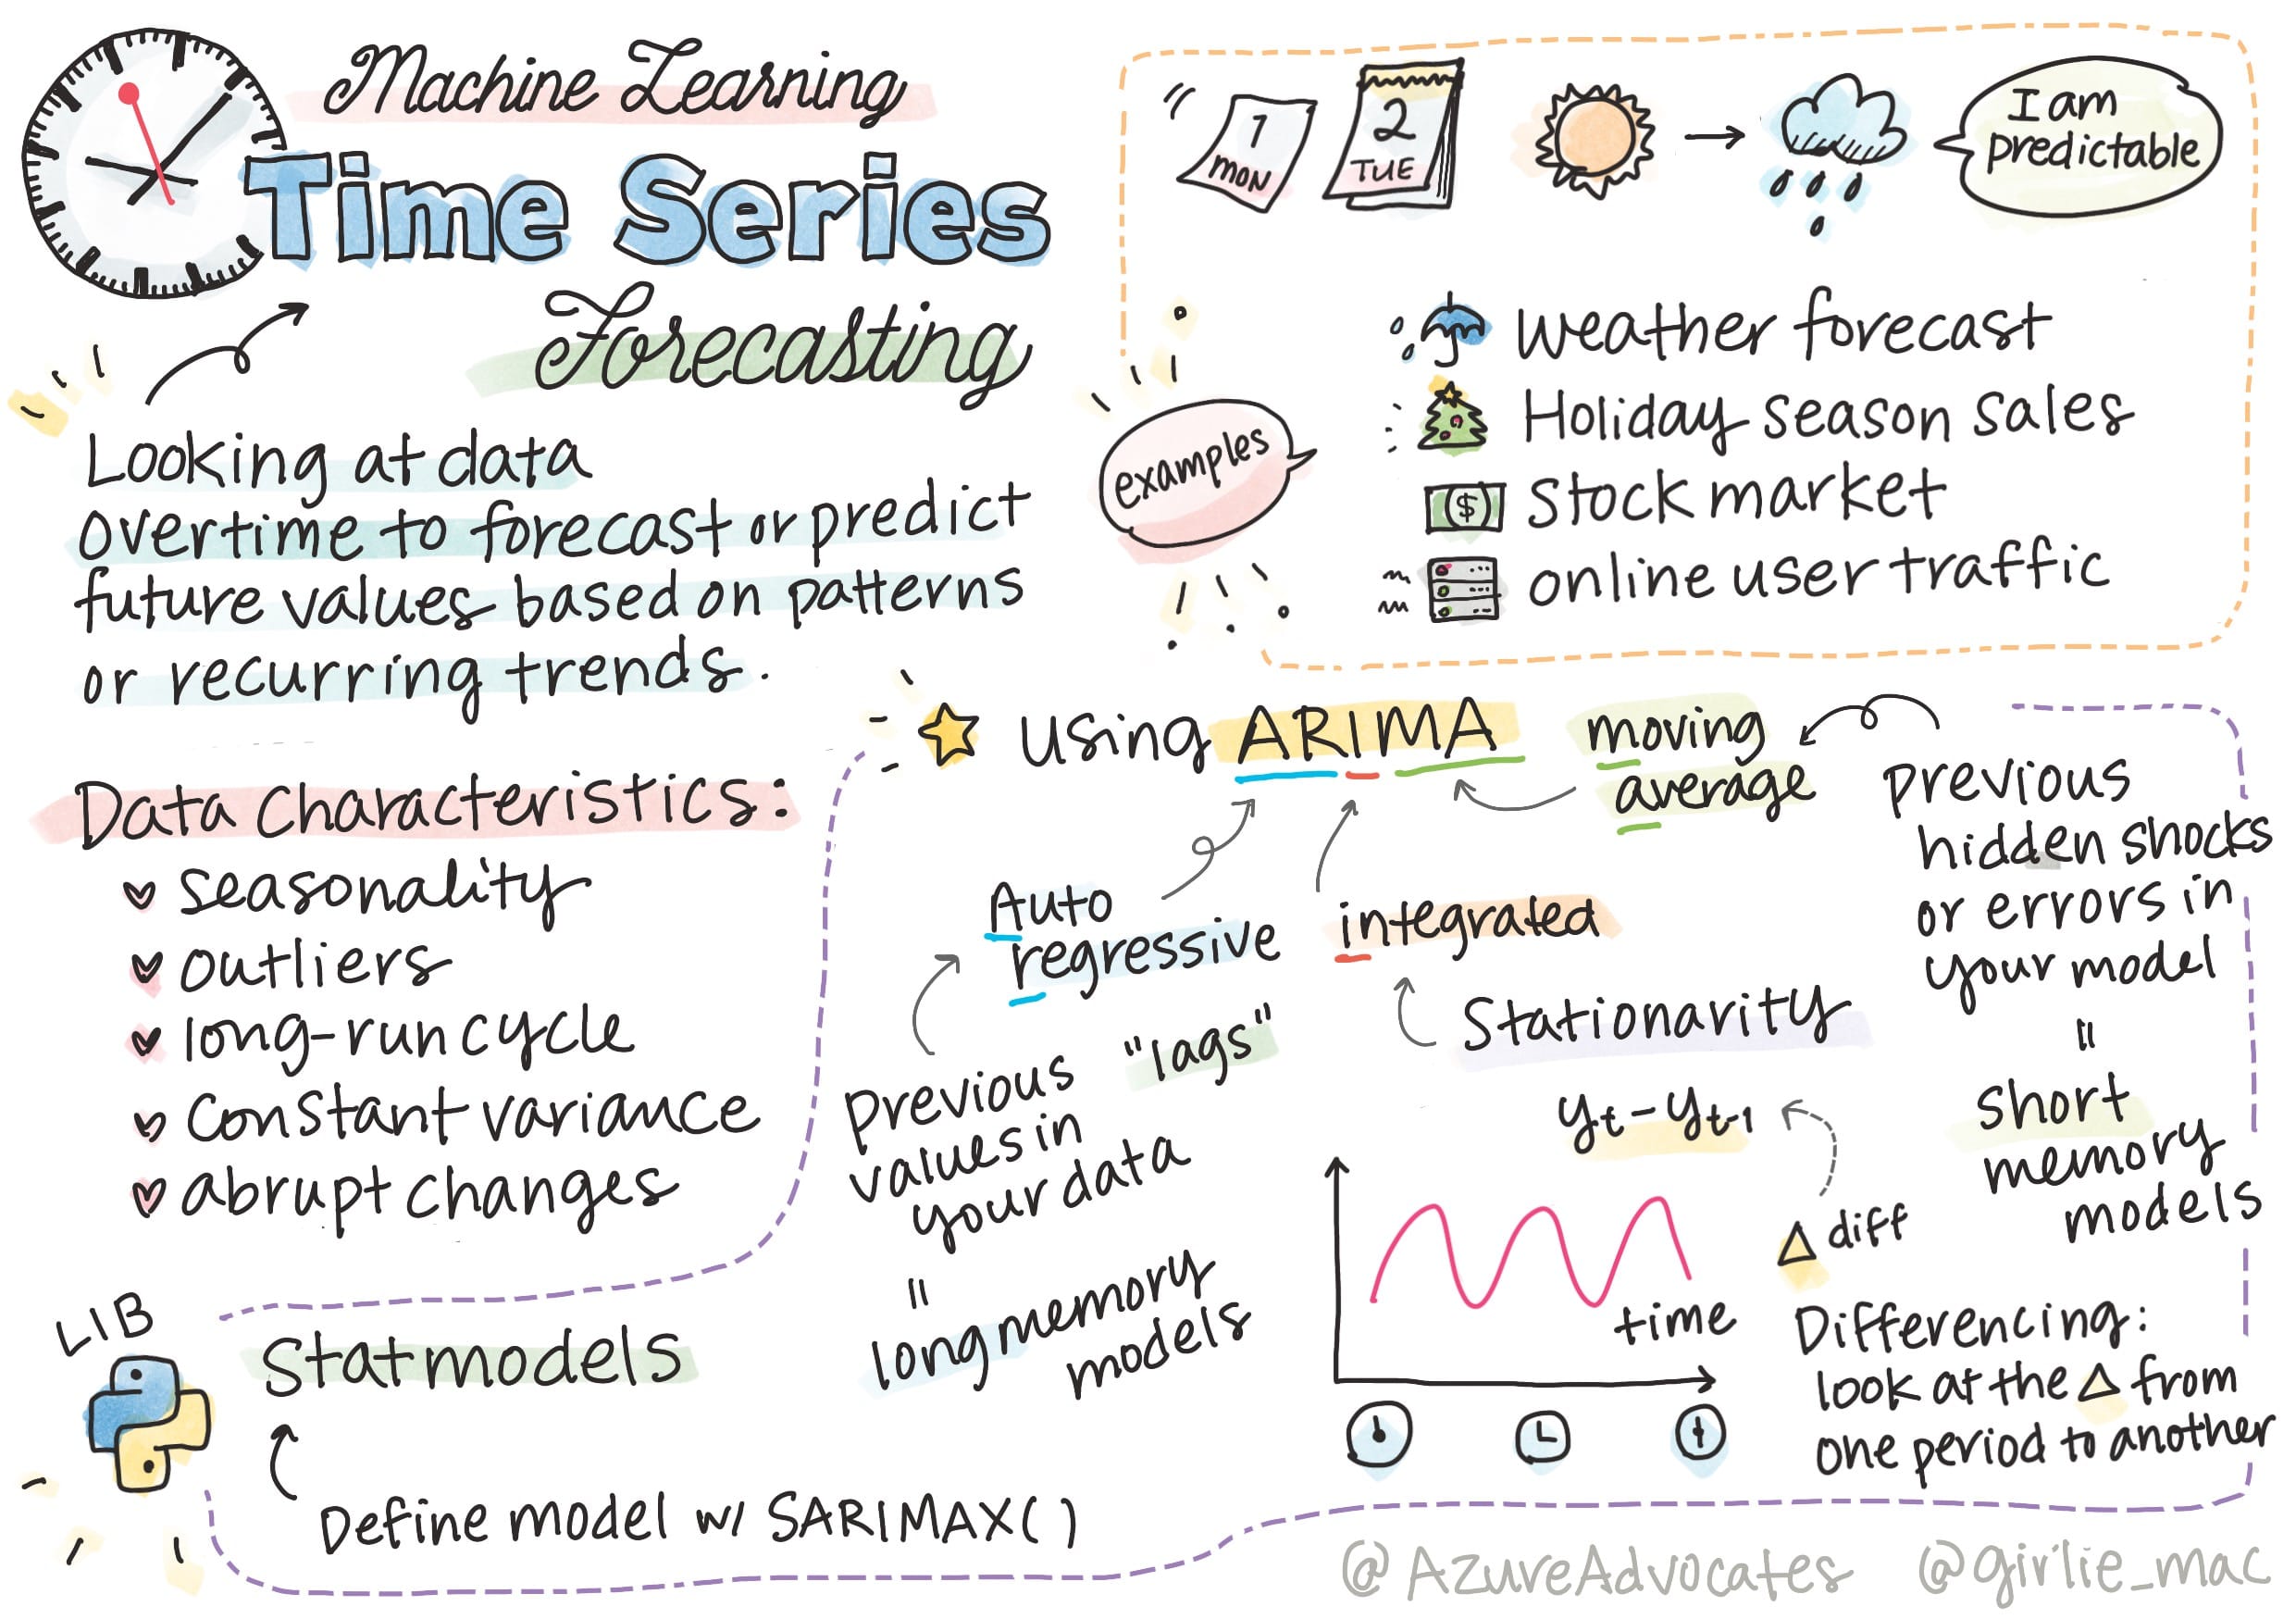 Machine Learning
Time Series
Forecasting
Looking at data
overtime to forecast or predict
future values based on patterns
or recurring trends.
Data Characteristics:
seasonality
outliers
long-run cycle
constant variance
abrupt changes
LIB
Statmodels
Define model w/ SARIMAX()
1
MON
2
TUE
I am
predictable
examples
weather forecast
Holiday season sales
$ stock market
online user traffic
using ARIMA
moving
average
previous
hidden shocks
or errors in
your model
=
short
memory
models
Auto
regressive
previous "lags"
values in
your data
=
long memory
models
integrated
Stationarity
yt - yt-1
Δ diff
time
Differencing:
look at the Δ from
one period to another
@AzureAdvocates @girlie_mac